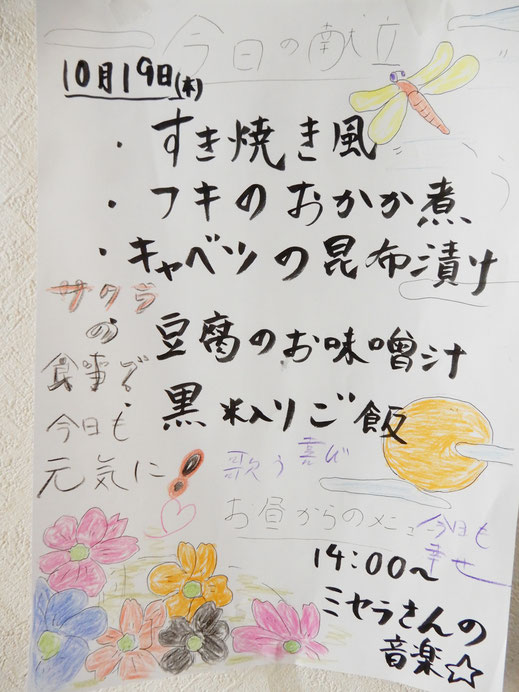 今日の献立
10月19日(木)
・すき焼き風
・フキのおかか煮
・キャベツの昆布漬け
豆腐のお味噌汁
黒米入りご飯
サクラ
の
食事で
今日も
元気に!
歌う喜び
お昼からのメニュー
今日も
幸せ
14:00〜
ミセラさんの
音楽☆